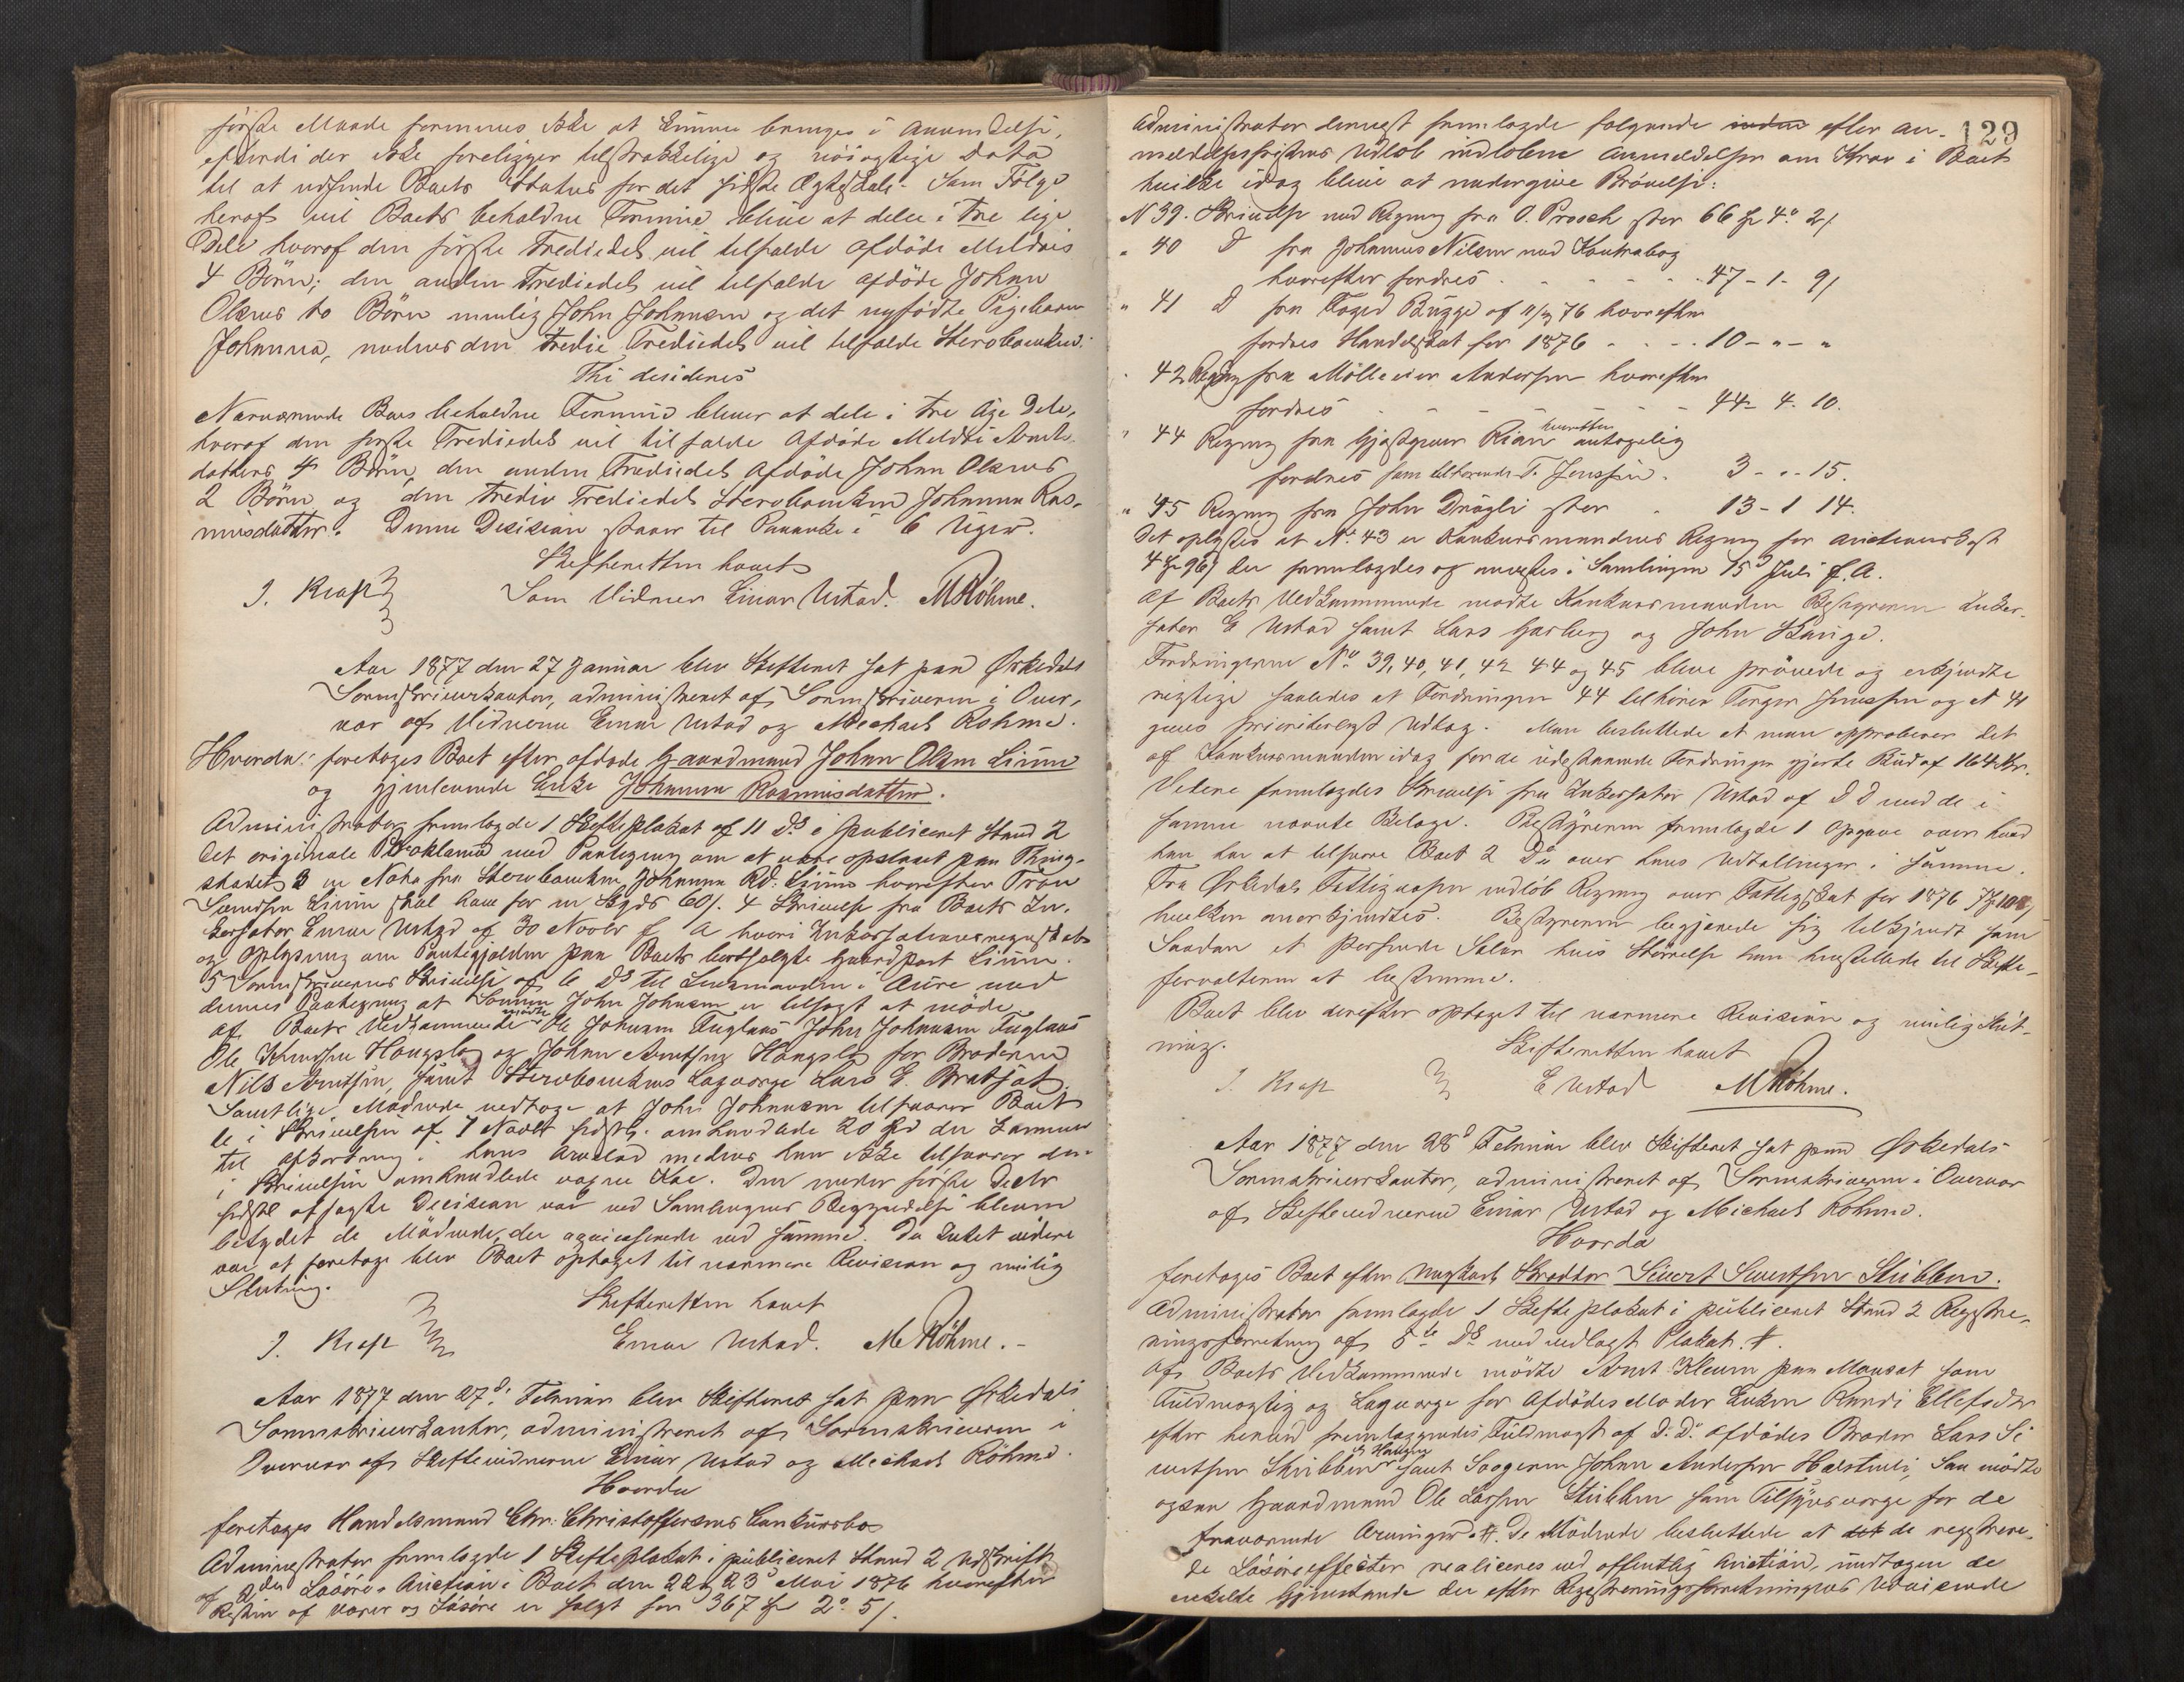 første Maade formenes ikke at kunne bringes i Anvendelse,
efterdi der ikke foreligger tilstrækkelige og nöiagtige Data
til at udfinde Boets Status for det første Ægteskab. Som Fölge
heraf vil Boets beholdne Formue blive at dele i tre lige
Dele hvoraf den förste Trediedel vil tilfalde afdöde Meldris
4 Börn; den anden Trediedel vil tilfalde afdöde Johan
Olsens to Börn nemlig John Johnsen og det nyfödte Pigebarn
Johanna, medens den tredie Trediedel vil tilfalde Sterboenken:
Thi desideres
Nærværende Boes beholdne Formue bliver at dele i tre lige Dele,
hvoraf den første Trediedel vil tilfalde Afdöde Meldri Arnts-
datters 4 Börn, den anden Trediedel Afdöde Johan Olsens
2 Börn og den tredie Trediedel Sterboenken Johanna Ras-
musdatter. Denne Decision staaer til Paaanke i 6 Uger.
Skifteretten hævet
J. Krap Som Vidner Einar Ustad. M Röhme.
Aar 1877 den 27 Januar blev Skifteret sat paa Örkedals
Sorenskriverkontor, administreret af Sorenskriveren i Over-
vær af Vidnerne Einar Ustad og Michael Röhme.
Hvorda: foretoges Boet efter afdøde Gaardmand Johan Olsen Lium
og gjenlevende Enke Johanna Rasmusdatter.
Administrator fremlagde 1 Skifteplakat af 11 Ds i publiceret Stand 2
Det originale Proklama med Paategning om at være opslaaet paa Thing-
stedet 3 en Nota fra Sterboenken Johanna Rd. Liums hvorefter Tron
Lium skal have for en 60/. 4 Skrivelse fra Boets In-
kassator Einar Ustad af 30 Novbr f A hvori Inkassationsregnskab
og Oplysning om Pantegjælden paa Boets bortsolgte Gaardpart Lium.
5 Sorenskriverens Skrivelse af 6 Ds til Lensmanden i Aure med
dennes Paategning at John Johnsen er tilsagt at möde
af Boets Vedkommende mödte Ole Johnsen Fuglaas John Johnsen Fuglaas
Ole Haugslo og Johan Arntsen Haugslo for Broderen
Nils Arntsen, samt Sterboenkens Laugværge Lars E. Bratset.
Samtlige Mødende vedtoge at John Johnsen tilsvarer Boet
de i Skrivelsen af 7 Novbr sidstl. omhandlede 20 Spd der kommer
til Afkortning i hans Arvelod medens han ikke tilsvarer den
i Skrivelsen omhandlede Koe. Den under første Decbr
sidstl afsagte Decision var ved Samlingens Begyndelse bleven
betydet de Mödende, der acquiescerede ved samme. Da Intet videre
var at foretage blev Boet optaget til nærmere Revision og mulig
Slutning.
Skifteretten hævet
J. Krap Einar Ustad. M Röhme.-
Aar 1877 den 27d: Februar blev Skifteret sat paa Örkedals
Sorenskriverkontor, administreret af Sorenskriveren i
Overvær af Skiftevidnerne Einar Ustad og Michael Röhme.
Hvorda
foretoges Handelsmand Chr: Christoffersens Conkursbo
Administrator fremlagde 1 Skifteplakat i publiceret Stand 2 Udskrift
af 2den Lösöre Auction i Boet den 22 og 23d Mai 1876 hvorefter
Resten af Varer og Lösöre er solgt for 367 Sp 2o 5/.
129
Administrator dernæst fremlagde følgende inden efter An-
meldelsesfristens Udløb indløbne Anmeldelser om Krav i Boet
hvilke idag blive at undergive Prövelse:
N 39. Skrivelse med Regning fra O. Prosch stor 66 Sp 4o 2/
„ 40 D fra Johannes Nilsen med Kontrabog
hvorefter fordres . . . . 47 - 1 - 9/
„ 41 D fra Foged Bugge af 76 hvorefter
fordres Handelsskat for 1876 . . . 10 - „ - „
„ 42 Regng fra Mölleeier Andersen hvorefter
fordres . . . . 44 - 4. 10.
„ 44 Regning fra Gjæstgiver Rian hvorefter antagelig
fordres som tilhörende T. Jenssen . 3 - „ - 15.
„ 45 Regning fra John Drögli stor . 13 - 1 14.
Det oplystes at No. 43 er Konkursmandens Regning for Auctionskost
4 Sp 96/ der fremlagdes og i Samlingen 15d Juli f. A.
Af Boets Vedkommende mødte Konkursmanden Bestyreren Inkas-
sator E Ustad samt Lars Garberg og John Kringe.
Fordringerne No. 39, 40, 41, 42 44 og 45 bleve prövede og erkjendte
rigtige saaledes at Fordringen 44 tilhörer Jenssen og N 41
gives prioriteret Udlæg. Man besluttede at man approberer det
af Konkursmanden idag for de udestaaende Fordringer gjorte Bud af 164 Kr.
Videre fremlagdes Skrivelse fra Inkassator Ustad af D D med de i
samme nævnte Bilage. Bestyreren fremlagde 1 Opgave over hvad
han har at tilsvare Boet 2 Do over hans Udtællinger i samme.
Fra Örkedals Fattigvæsen indlöb Regning over Fattigskat for 1876
hvilken anerkjendtes. Bestyreren begjærede sig tilkjendt som
Saadan et passende Salær hvis Størrelse han henstillede til Skifte-
forvalteren at bestemme.
Boet blev derefter optaget til nærmere Revision og mulig Slut-
ning.
Skifteretten hævet
J. Krap E Ustad M Röhme.
Aar 1877 den 28d Februar blev Skifteret sat paa Örkedals
Sorenskriverkontor, administreret af Sorenskriveren i Overvær
af Skiftevidnerne Einar Ustad og Michael Röhme.
Hvorda
foretoges Boet efter Ungkarl Skrædder Sivert Sivertsen Stubben.
Administrator fremlagde 1 Skifteplakat i publiceret Stand 2 Registre-
ringsforretning af 5te Ds med vedlagt Plakat. #.
Af Boets Vedkommende mödte Arnt Kleven paa Monset som
Fuldmægtig og Laugværge for Afdødes Moder Enken Randi Ellefsdtr
efter hendes fremlæggendes Fuldmagt af D. D. Afdödes Broder Lars Si-
vertsen Stubben samt Svogeren Johan Andersen Halstuli, Saa mödte
ogsaa Gaardmand Ole Larsen Stubben som Tilsynsværge for de
fraværende Arvinger. #. De Mödende besluttede at det de registrere-
de Lösöreeffecter realiseres ved offentlig Auction, undtagen de
enkelte Gjenstande der efter Registreringsforretningens Udvisende